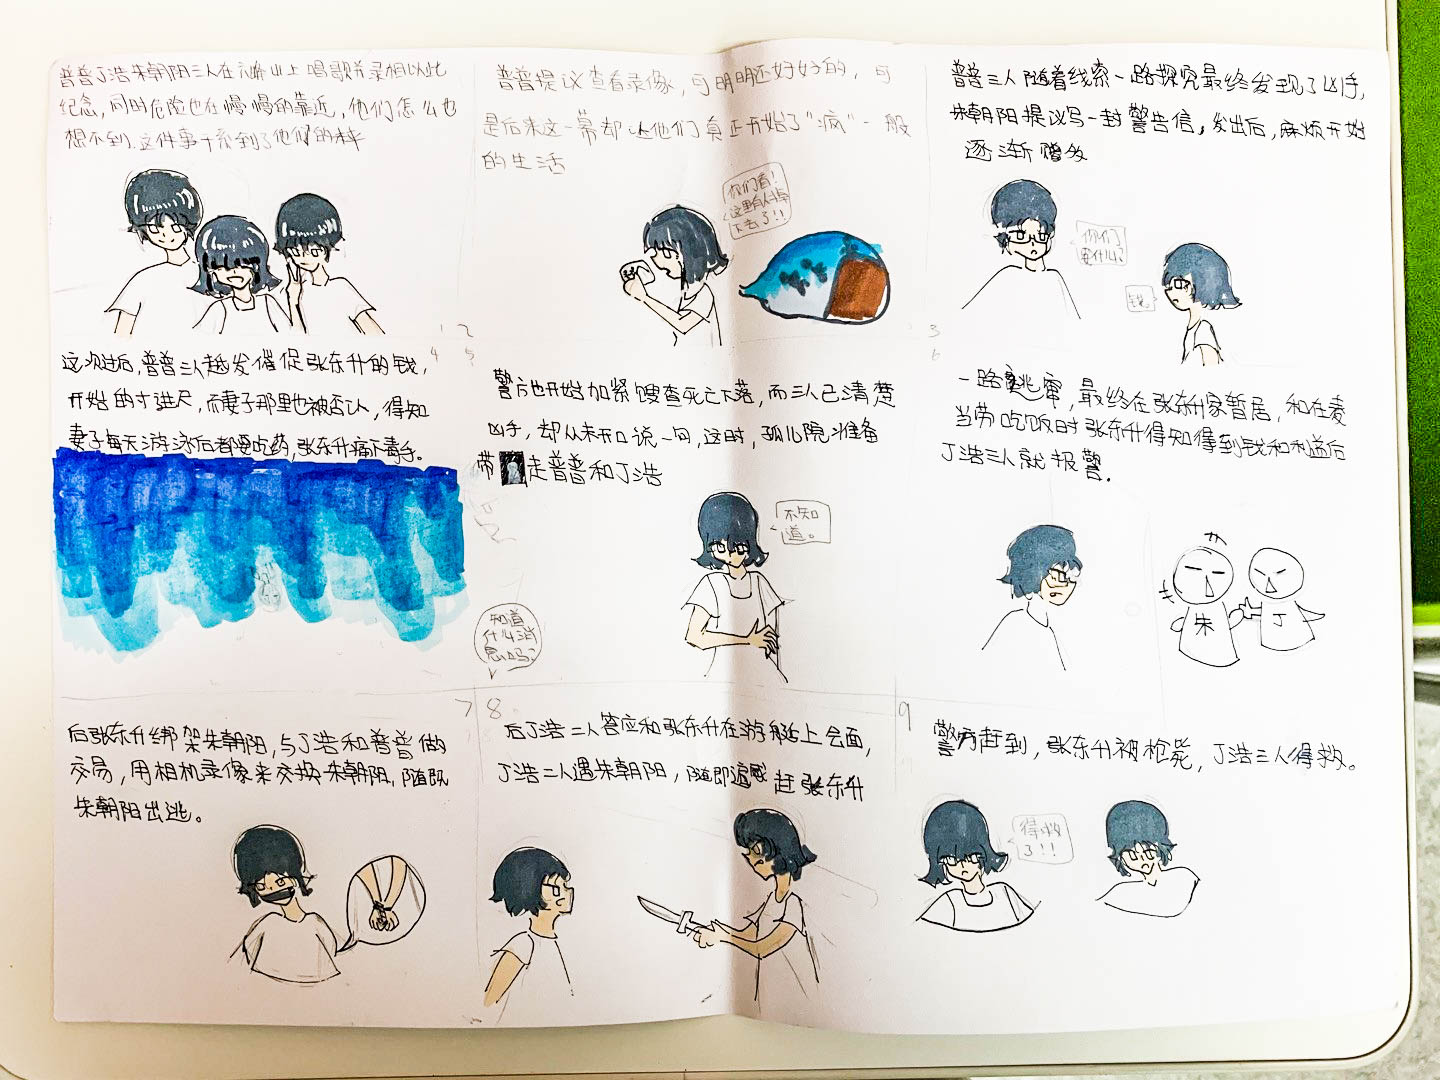 普普丁浩朱朝阳三人在六峰山上唱歌并录相以此
纪念,同时危险也在慢慢的靠近,他们怎么也
想不到.这件事干系到了他们的
1
普普提议查看录像,可明明还好好的,可
是后来这一幕却让他们真正开始了“疯”一般
的生活
你们看!
这里有人掉
下去了!!
2
普普三人随着线索一路探究最终发现了凶手,
朱朝阳提议写一封警告信,发出后,麻烦开始
逐渐增多
你们
要什么?
钱。
3
4
这次过后,普普三人越发催促张东升的钱,
开始的寸进尺,而妻子那里也被否认,得知
妻子每天游泳后都要吃药,张东升痛下毒手。
5
警方也开始加紧搜查死亡下落,而三人已清楚
凶手,却从未开口说一句,这时,孤儿院准备
带走普普和丁浩
不知
道。
知道
什么消
息吗?
6
一路逃窜,最终在张东升家暂居,和在麦
当劳吃饭时张东升得知得到钱和利益后
丁浩三人就报警.
朱
丁
7
后张东升绑架朱朝阳,与丁浩和普普做
交易,用相机录像来交换朱朝阳,随既
朱朝阳出逃。
8
后丁浩二人答应和张东升在游艇上会面,
丁浩二人遇朱朝阳,随即追赶张东升
9
警方赶到,张东升被枪毙,丁浩三人得救。
得救
了!!